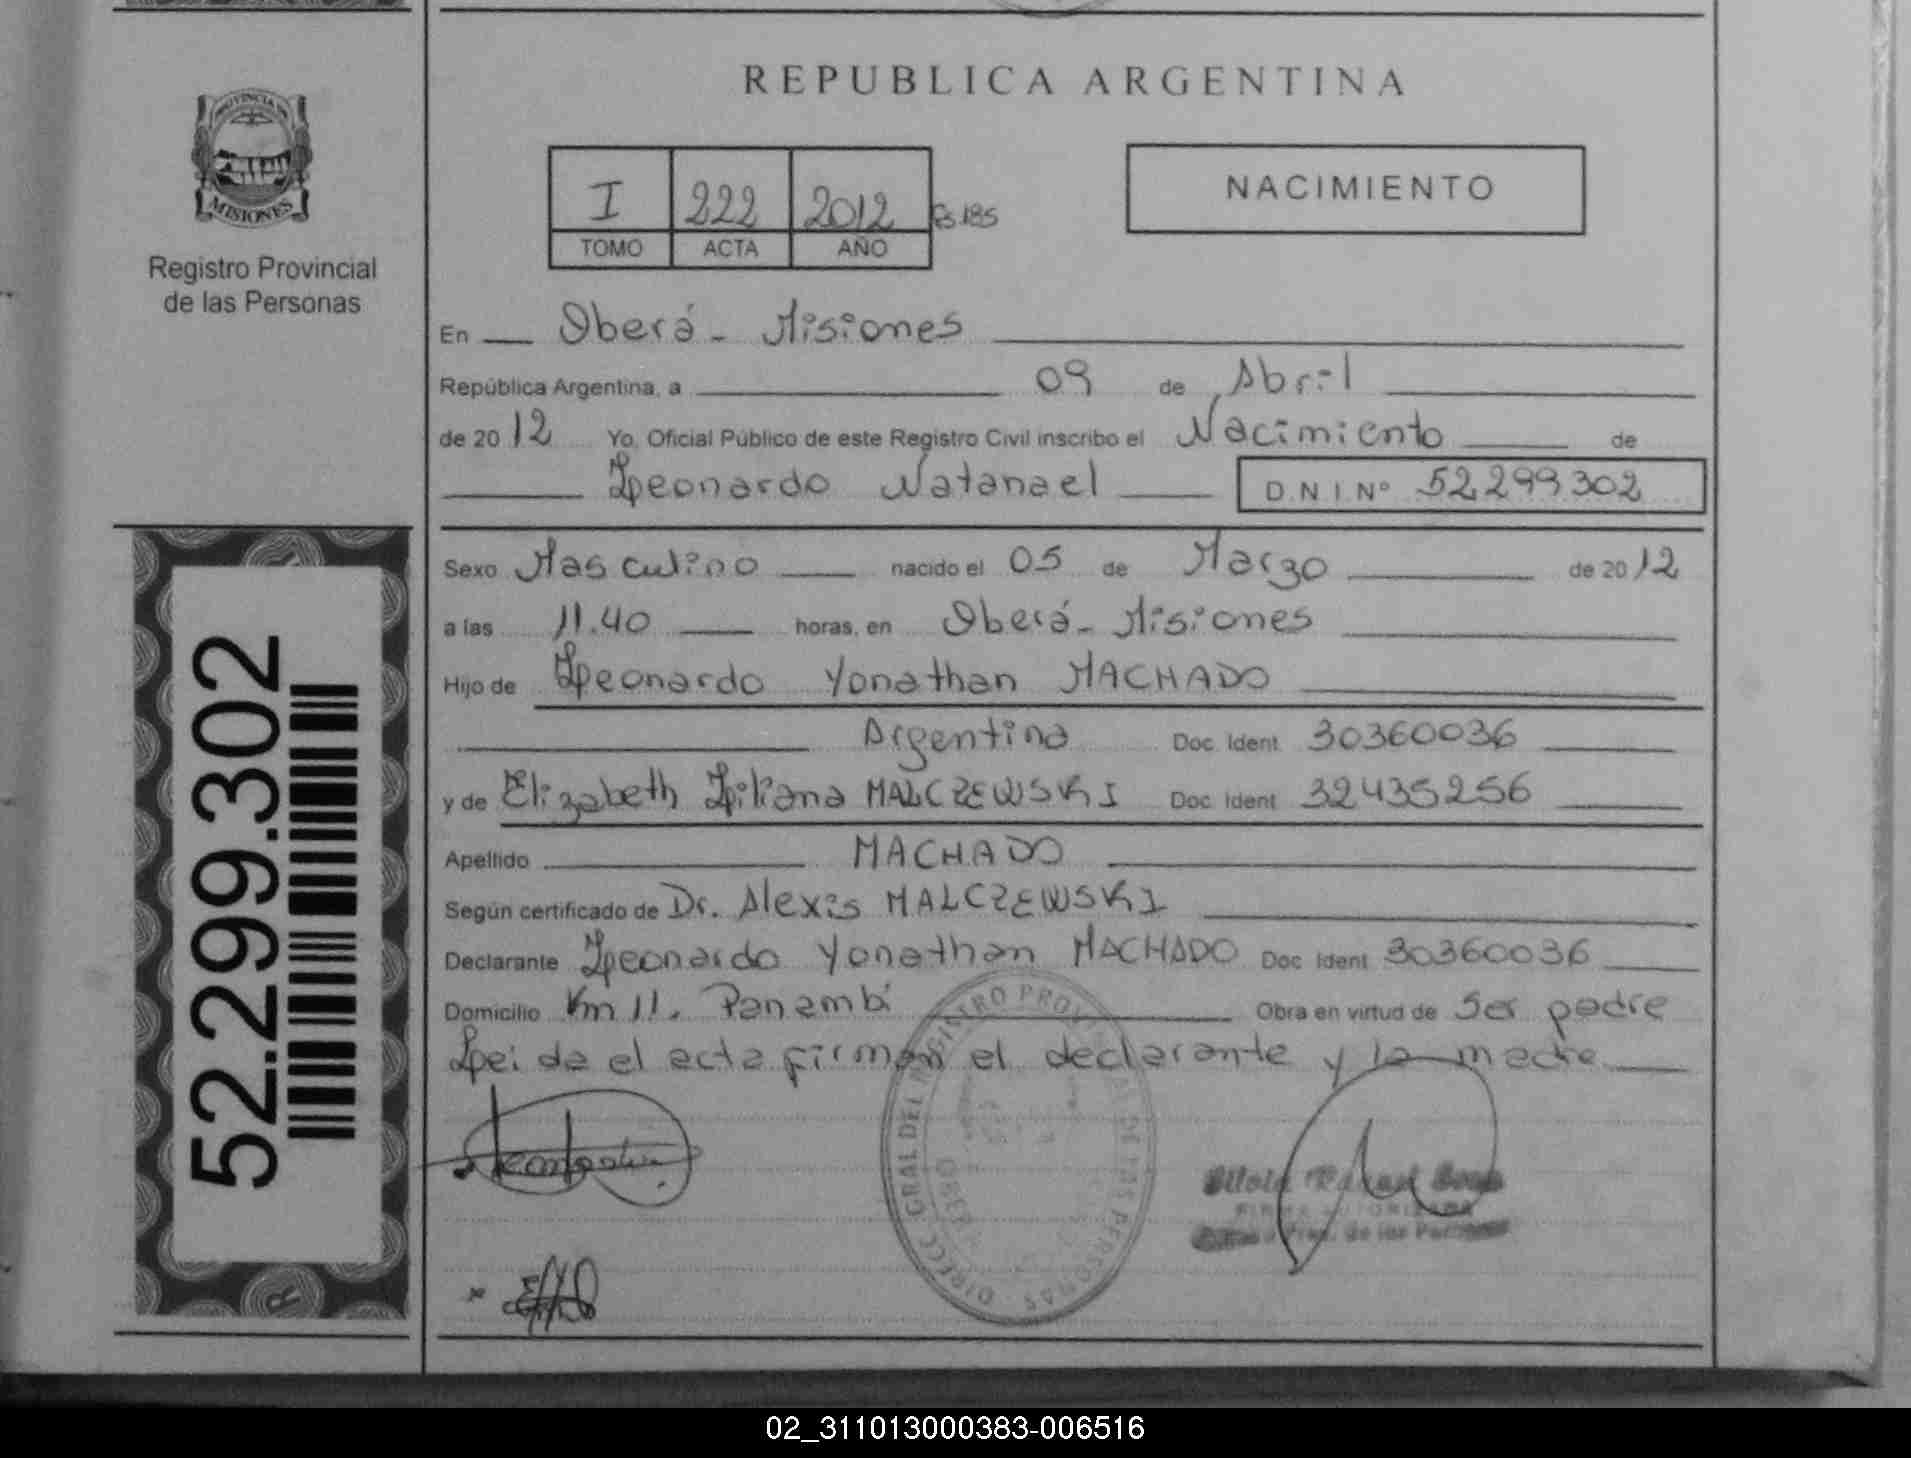 REPUBLICA ARGENTINA
PROVINCIA DE
MISIONES
Registro Provincial
de las Personas
I 222 2012 Fs.185
TOMO ACTA AÑO
NACIMIENTO
En Oberá - Misiones
República Argentina, a 09 de Abril
de 2012 Yo, Oficial Público de este Registro Civil inscribo el Nacimiento de
Leonardo Natanael D.N.I. Nº 52.299.302
Sexo Masculino nacido el 05 de Marzo de 2012
a las 11.40 horas, en Oberá - Misiones
Hijo de Leonardo Yonathan MACHADO
Argentina Doc. Ident. 30360036
y de Elizabeth Liliana MALCZEWSKI Doc. Ident. 32435256
Apellido MACHADO
Según certificado de Dr. Alexis MALCZEWSKI
Declarante Leonardo Yonathan MACHADO Doc. Ident. 30360036
Domicilio Km 11. Panambí Obra en virtud de Ser padre
Lei da el acta firman el declarante y la madre
52.299.302
DIRECC. GRAL DEL REGISTRO PROVINCIAL DE LAS PERSONAS
OBERA
FIRMA AUTORIZADA
Prov. de las Personas
02_311013000383-006516